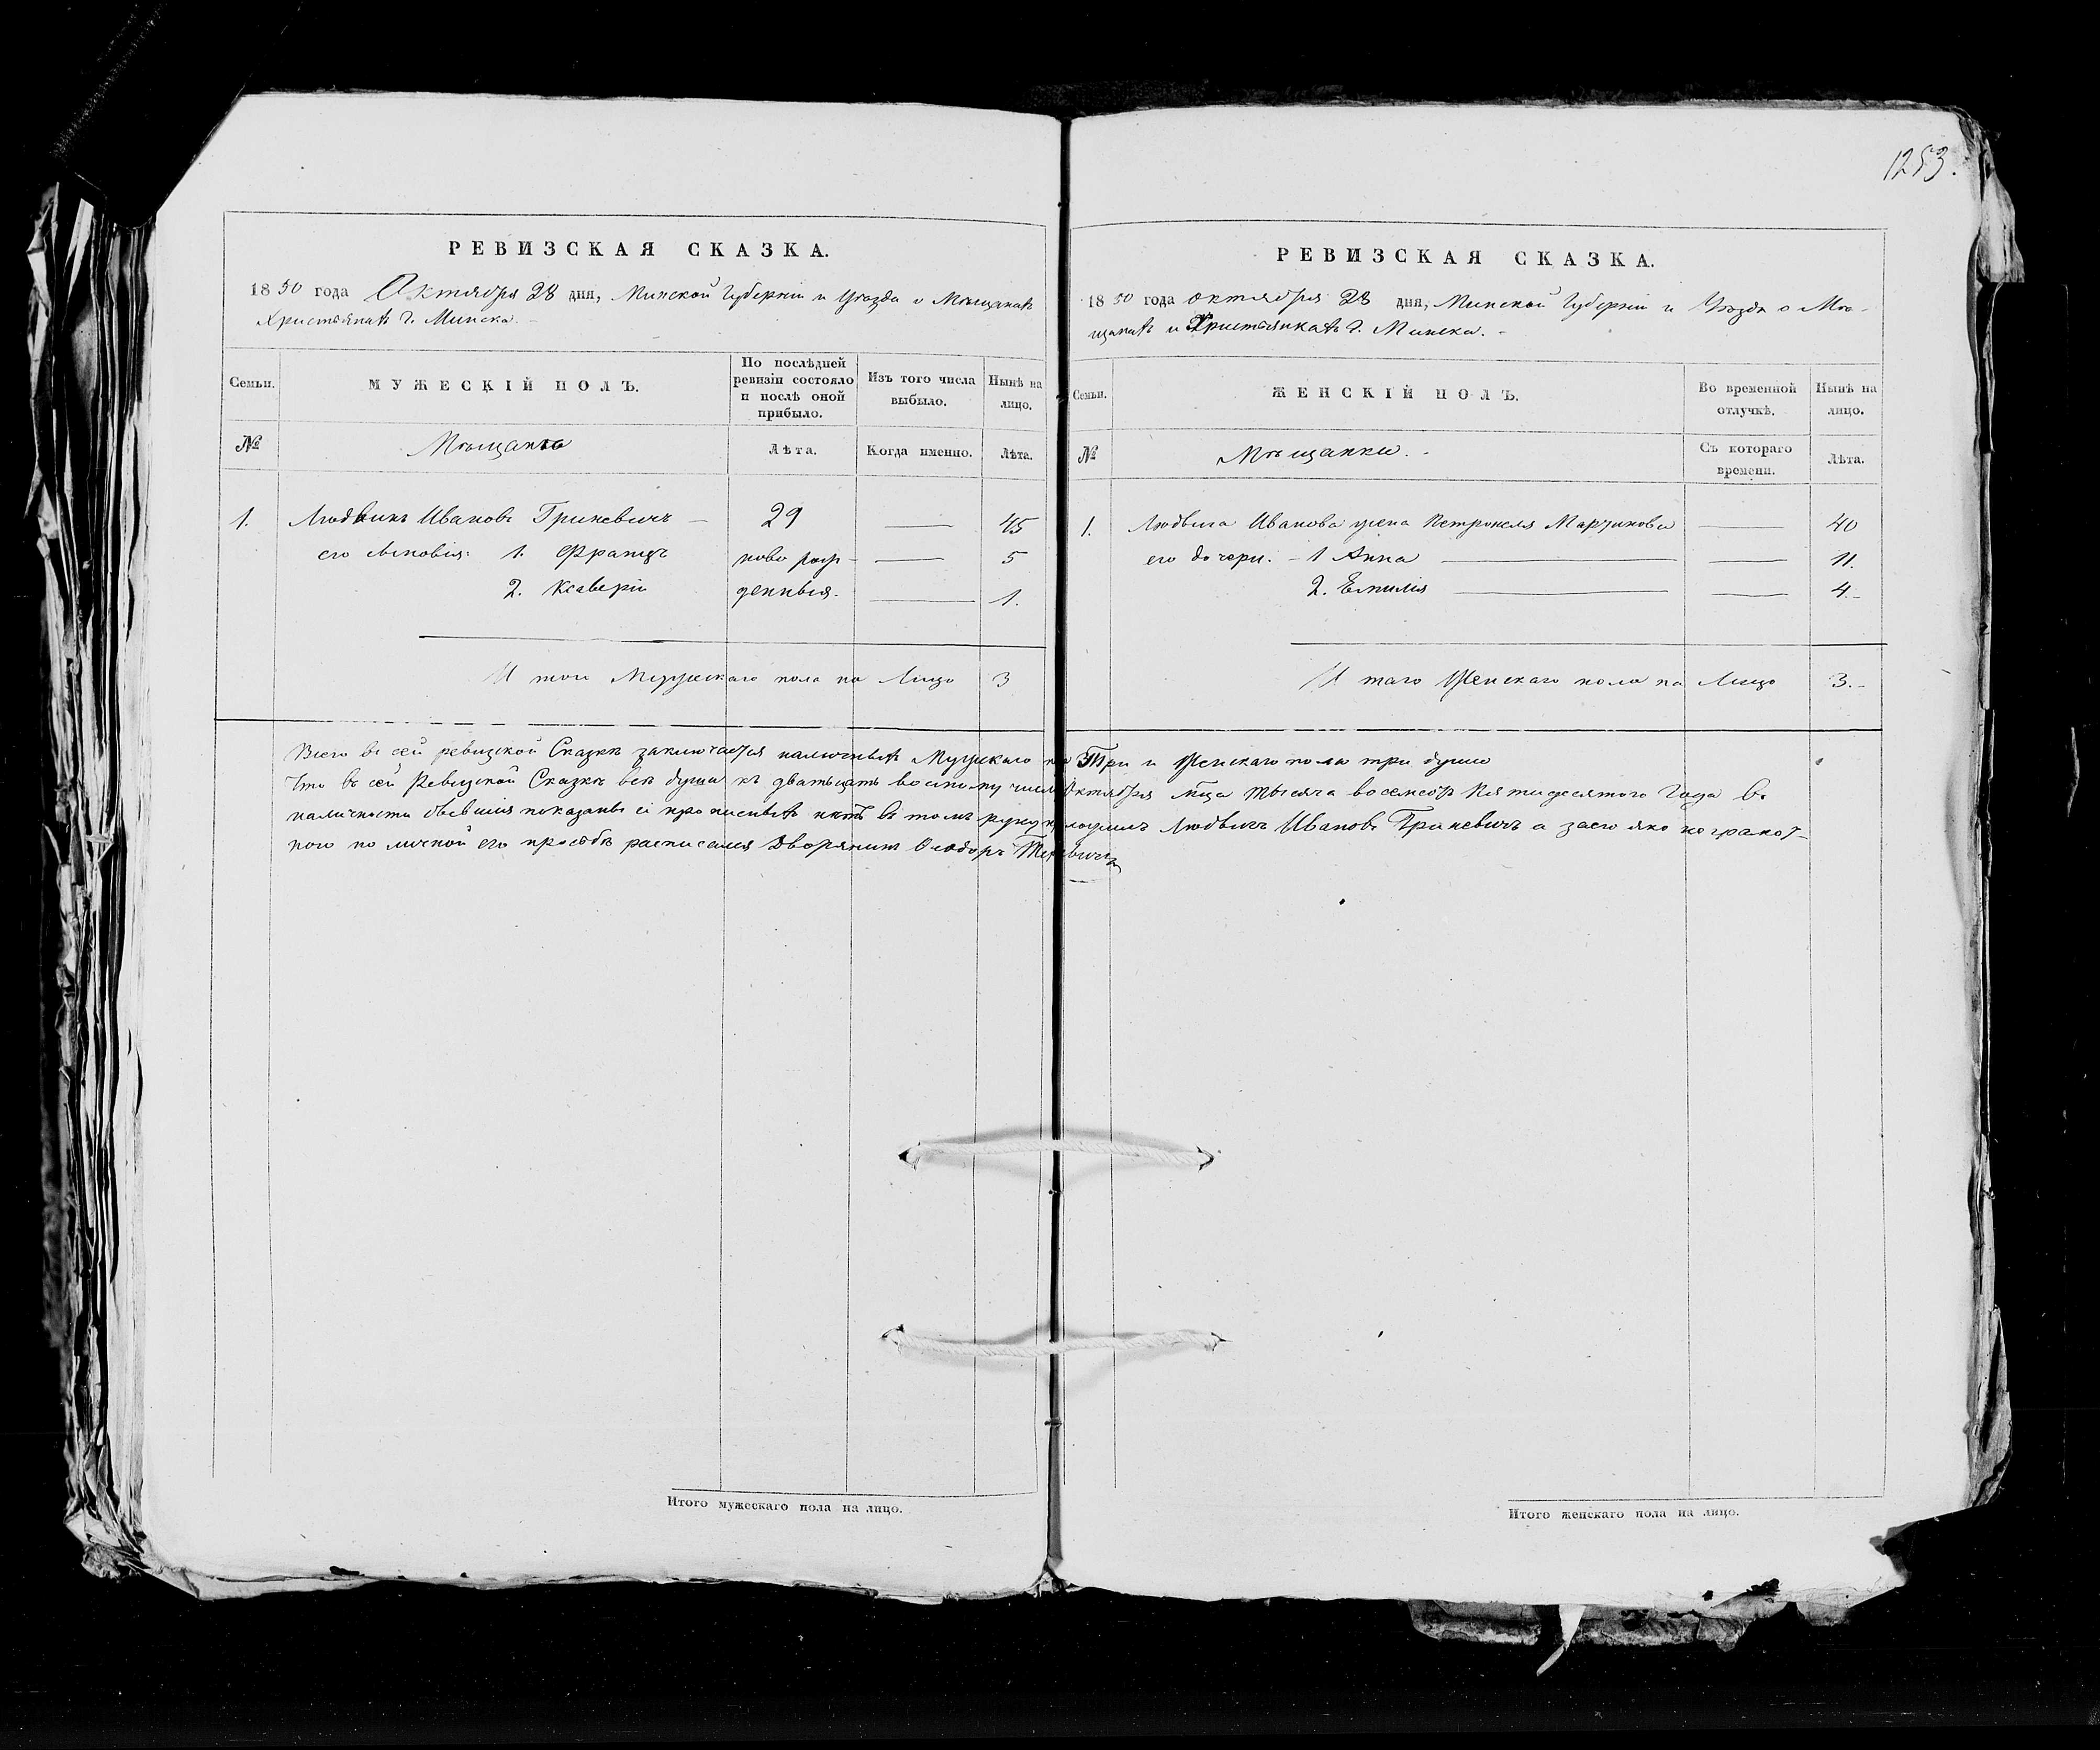 1253.
РЕВИЗСКАЯ СКАЗКА.
1850 года Октября 28 дня, Минской Губерніи и Уѣзда о Мѣщанахъ
Христіянахъ г. Минска.
Семьи.
МУЖЕСКІЙ ПОЛЪ.
По послѣдней ревизіи состояло и послѣ оной прибыло.
Изъ того числа выбыло.
Нынѣ на лицо.
№
Мѣщане
Лѣта.
Когда именно.
Лѣта.
1. Людвикъ Ивановъ Гриневичъ — 29 — 45
его сыновья: 1. Францъ ново рож- — 5
2. Ксаверій денныя. — 1.
Итого Мужескаго пола на Лицо 3
РЕВИЗСКАЯ СКАЗКА.
1850 года октября 28 дня, Минской Губерніи и Уѣзда о Мѣ-
щанахъ и Христіянкахъ г. Минска. -
Семьи.
ЖЕНСКІЙ ПОЛЪ.
Во временной отлучкѣ.
Нынѣ на лицо.
№
Мѣщанки. -
Съ котораго времени.
Лѣта.
1. Людвига Иванова жена Петронеля Марцинова — 40
его дочери. - 1 Анна — 11.
2. Емилія — 4.-
Итаго Женскаго пола на Лицо 3.-
Всего въ сей ревизской Сказкѣ заключается наличныхъ Мужскаго Три и Женскаго пола три души
Что въ сей Ревизской Сказкѣ всѣ души къ дватцать восьмому числу Октября м-ца тысяча восемсотъ Пятидесятого Года въ
наличности бывшия показаны и прописныхъ нѣтъ въ томъ руку приложилъ Людвигъ Ивановъ Гриневичъ а заего яко неграмот-
ного по личной его прозьбѣ расписался Дворянинъ Ѳеодоръ
Итого мужескаго пола на лицо.
Итого женскаго пола на лицо.